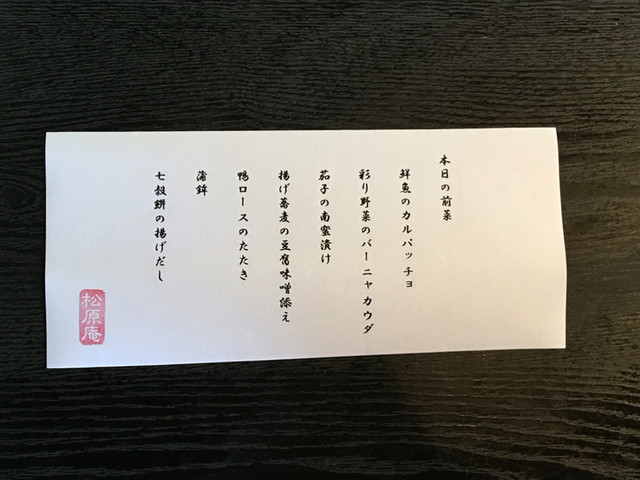 本日の前菜
鮮魚のカルパッチョ
彩り野菜のバーニャカウダ
茄子の南蛮漬け
揚げ蕎麦の豆腐味噌添え
鴨ロースのたたき
蒲鉾
七穀餅の揚げだし
松原庵